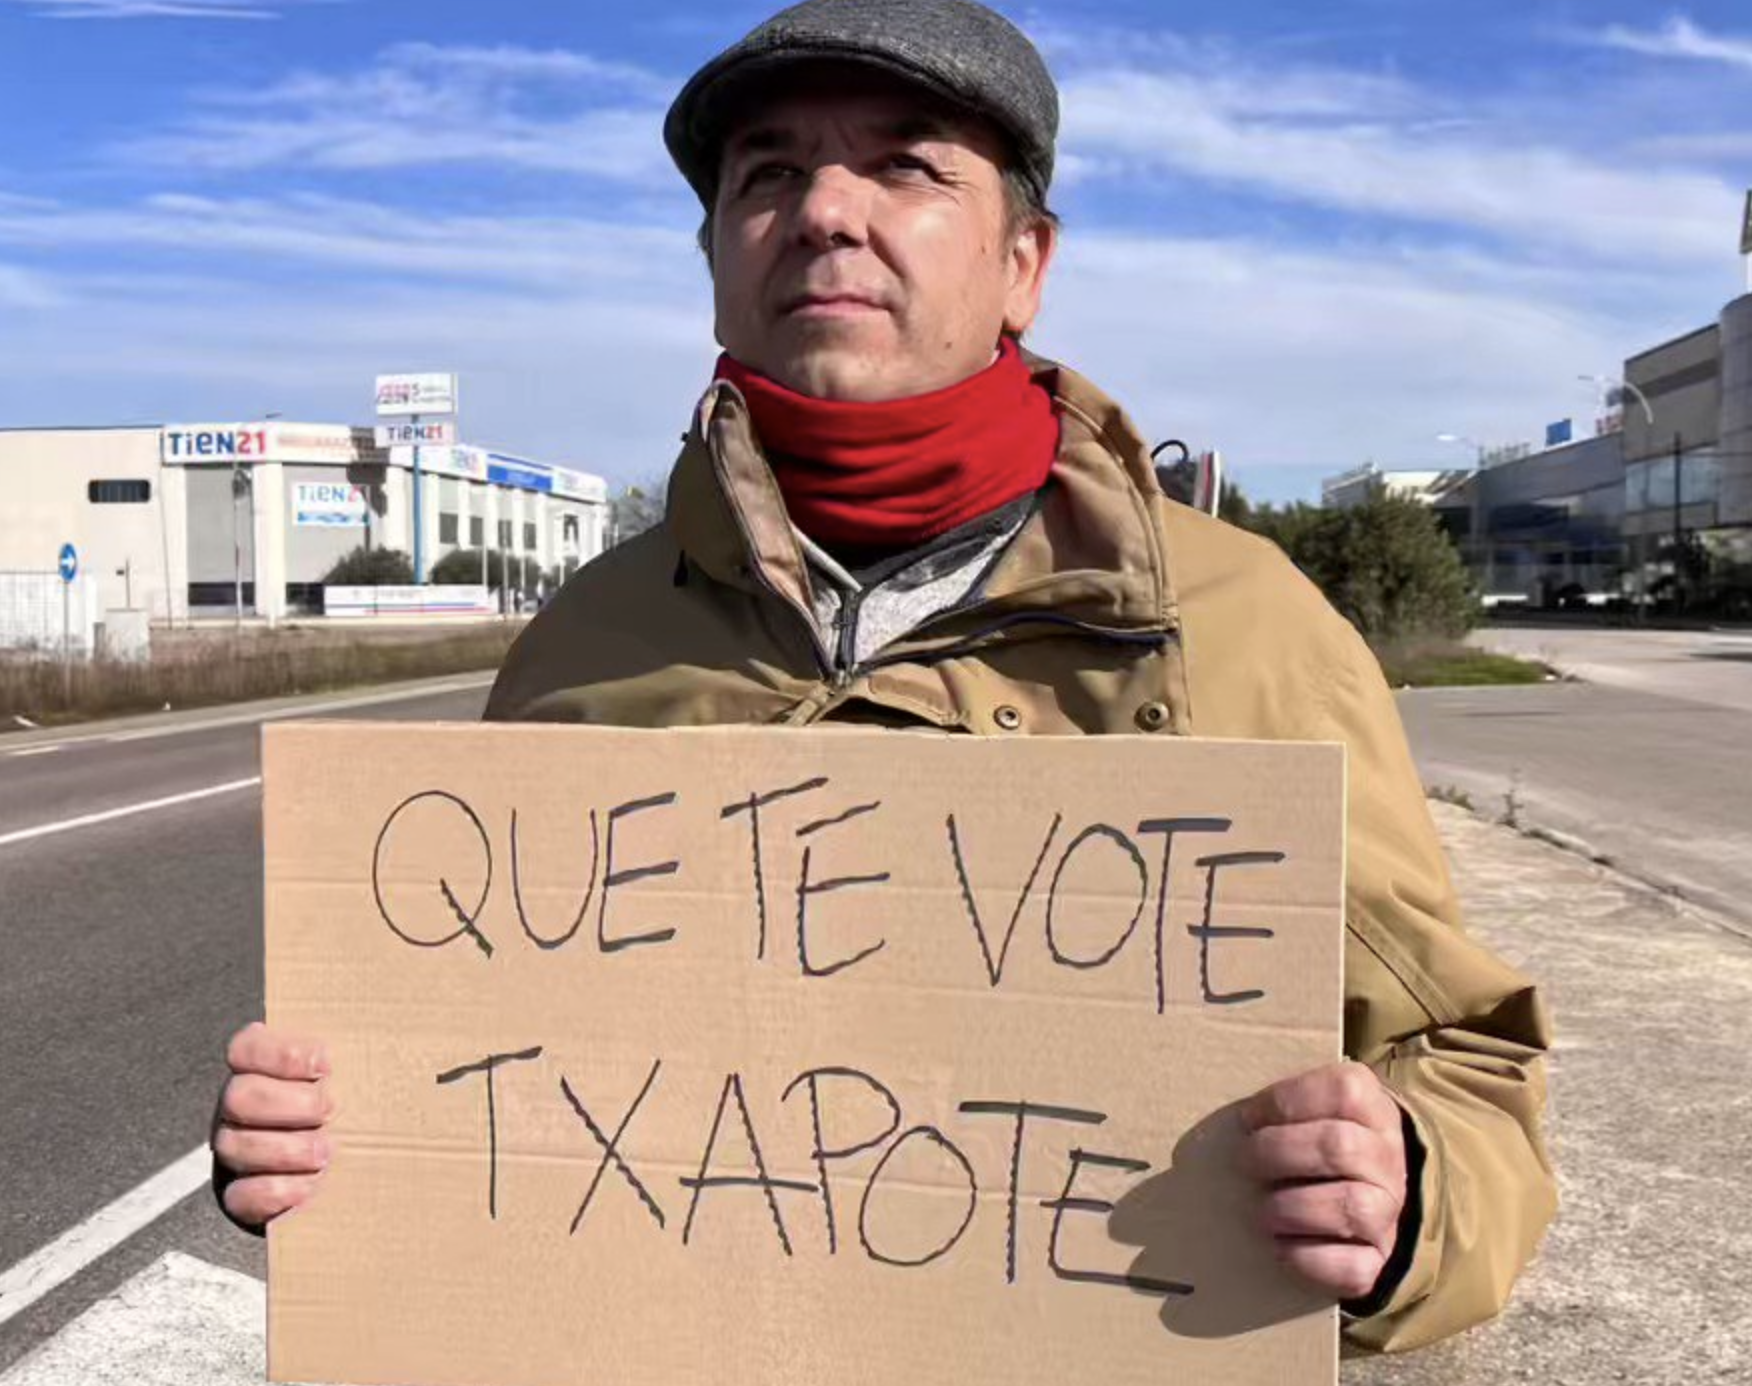 TiEN21
TiEN21
TiEN2
QUE TE VOTE
TXAPOTE